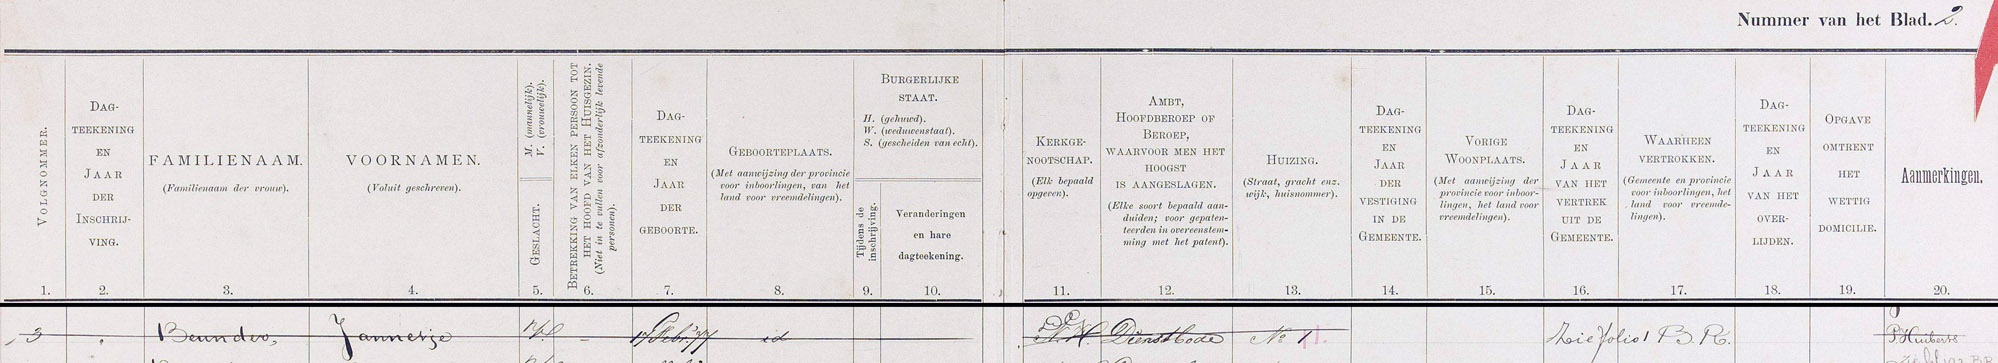 Nummer van het Blad. 2.
VOLGNOMMER.
1.
DAG-
TEEKENING
EN
JAAR
DER
INSCHRIJ-
VING.
2.
FAMILIENAAM.
(Familienaam der vrouw).
3.
VOORNAMEN.
(Voluit geschreven).
4.
GESLACHT.
M. (mannelijk).
V. (vrouwelijk).
5.
BETREKKING VAN ELKEN PERSOON TOT
HET HOOFD VAN HET HUISGEZIN.
(Niet in te vullen voor afzonderlijk levende
personen).
6.
DAG-
TEEKENING
EN
JAAR
DER
GEBOORTE.
7.
GEBOORTEPLAATS.
(Met aanwijzing der provincie
voor inboorlingen, van het
land voor vreemdelingen).
8.
BURGERLIJKE
STAAT.
H. (gehuwd).
W. (weduwenstaat).
S. (gescheiden van echt).
Tijdens de
inschrijving.
9.
Veranderingen
en hare
dagteekening.
10.
KERKGE-
NOOTSCHAP.
(Elk bepaald
opgeven).
11.
AMBT,
HOOFDBEROEP OF
BEROEP,
WAARVOOR MEN HET
HOOGST
IS AANGESLAGEN.
(Elke soort bepaald aan-
duiden; voor gepaten-
teerden in overeenstem-
ming met het patent).
12.
HUIZING.
(Straat, gracht enz.
wijk, huisnommer).
13.
DAG-
TEEKENING
EN
JAAR
DER
VESTIGING
IN DE
GEMEENTE.
14.
VORIGE
WOONPLAATS.
(Met aanwijzing der
provincie voor inboor-
lingen, het land voor
vreemdelingen).
15.
DAG-
TEEKENING
EN
JAAR
VAN HET
VERTREK
UIT DE
GEMEENTE.
16.
WAARHEEN
VERTROKKEN.
(Gemeente en provincie
voor inboorlingen, het
land voor vreemde-
lingen).
17.
DAG-
TEEKENING
EN
JAAR
VAN HET
OVER-
LIJDEN.
18.
OPGAVE
OMTRENT
HET
WETTIG
DOMICILIE.
19.
Aanmerkingen.
20.
3 Beunder, Jannetje 17 Febr. 77 id N. H. Dienstbode No 1 Zie folio 1 B. R. P. Huiberts